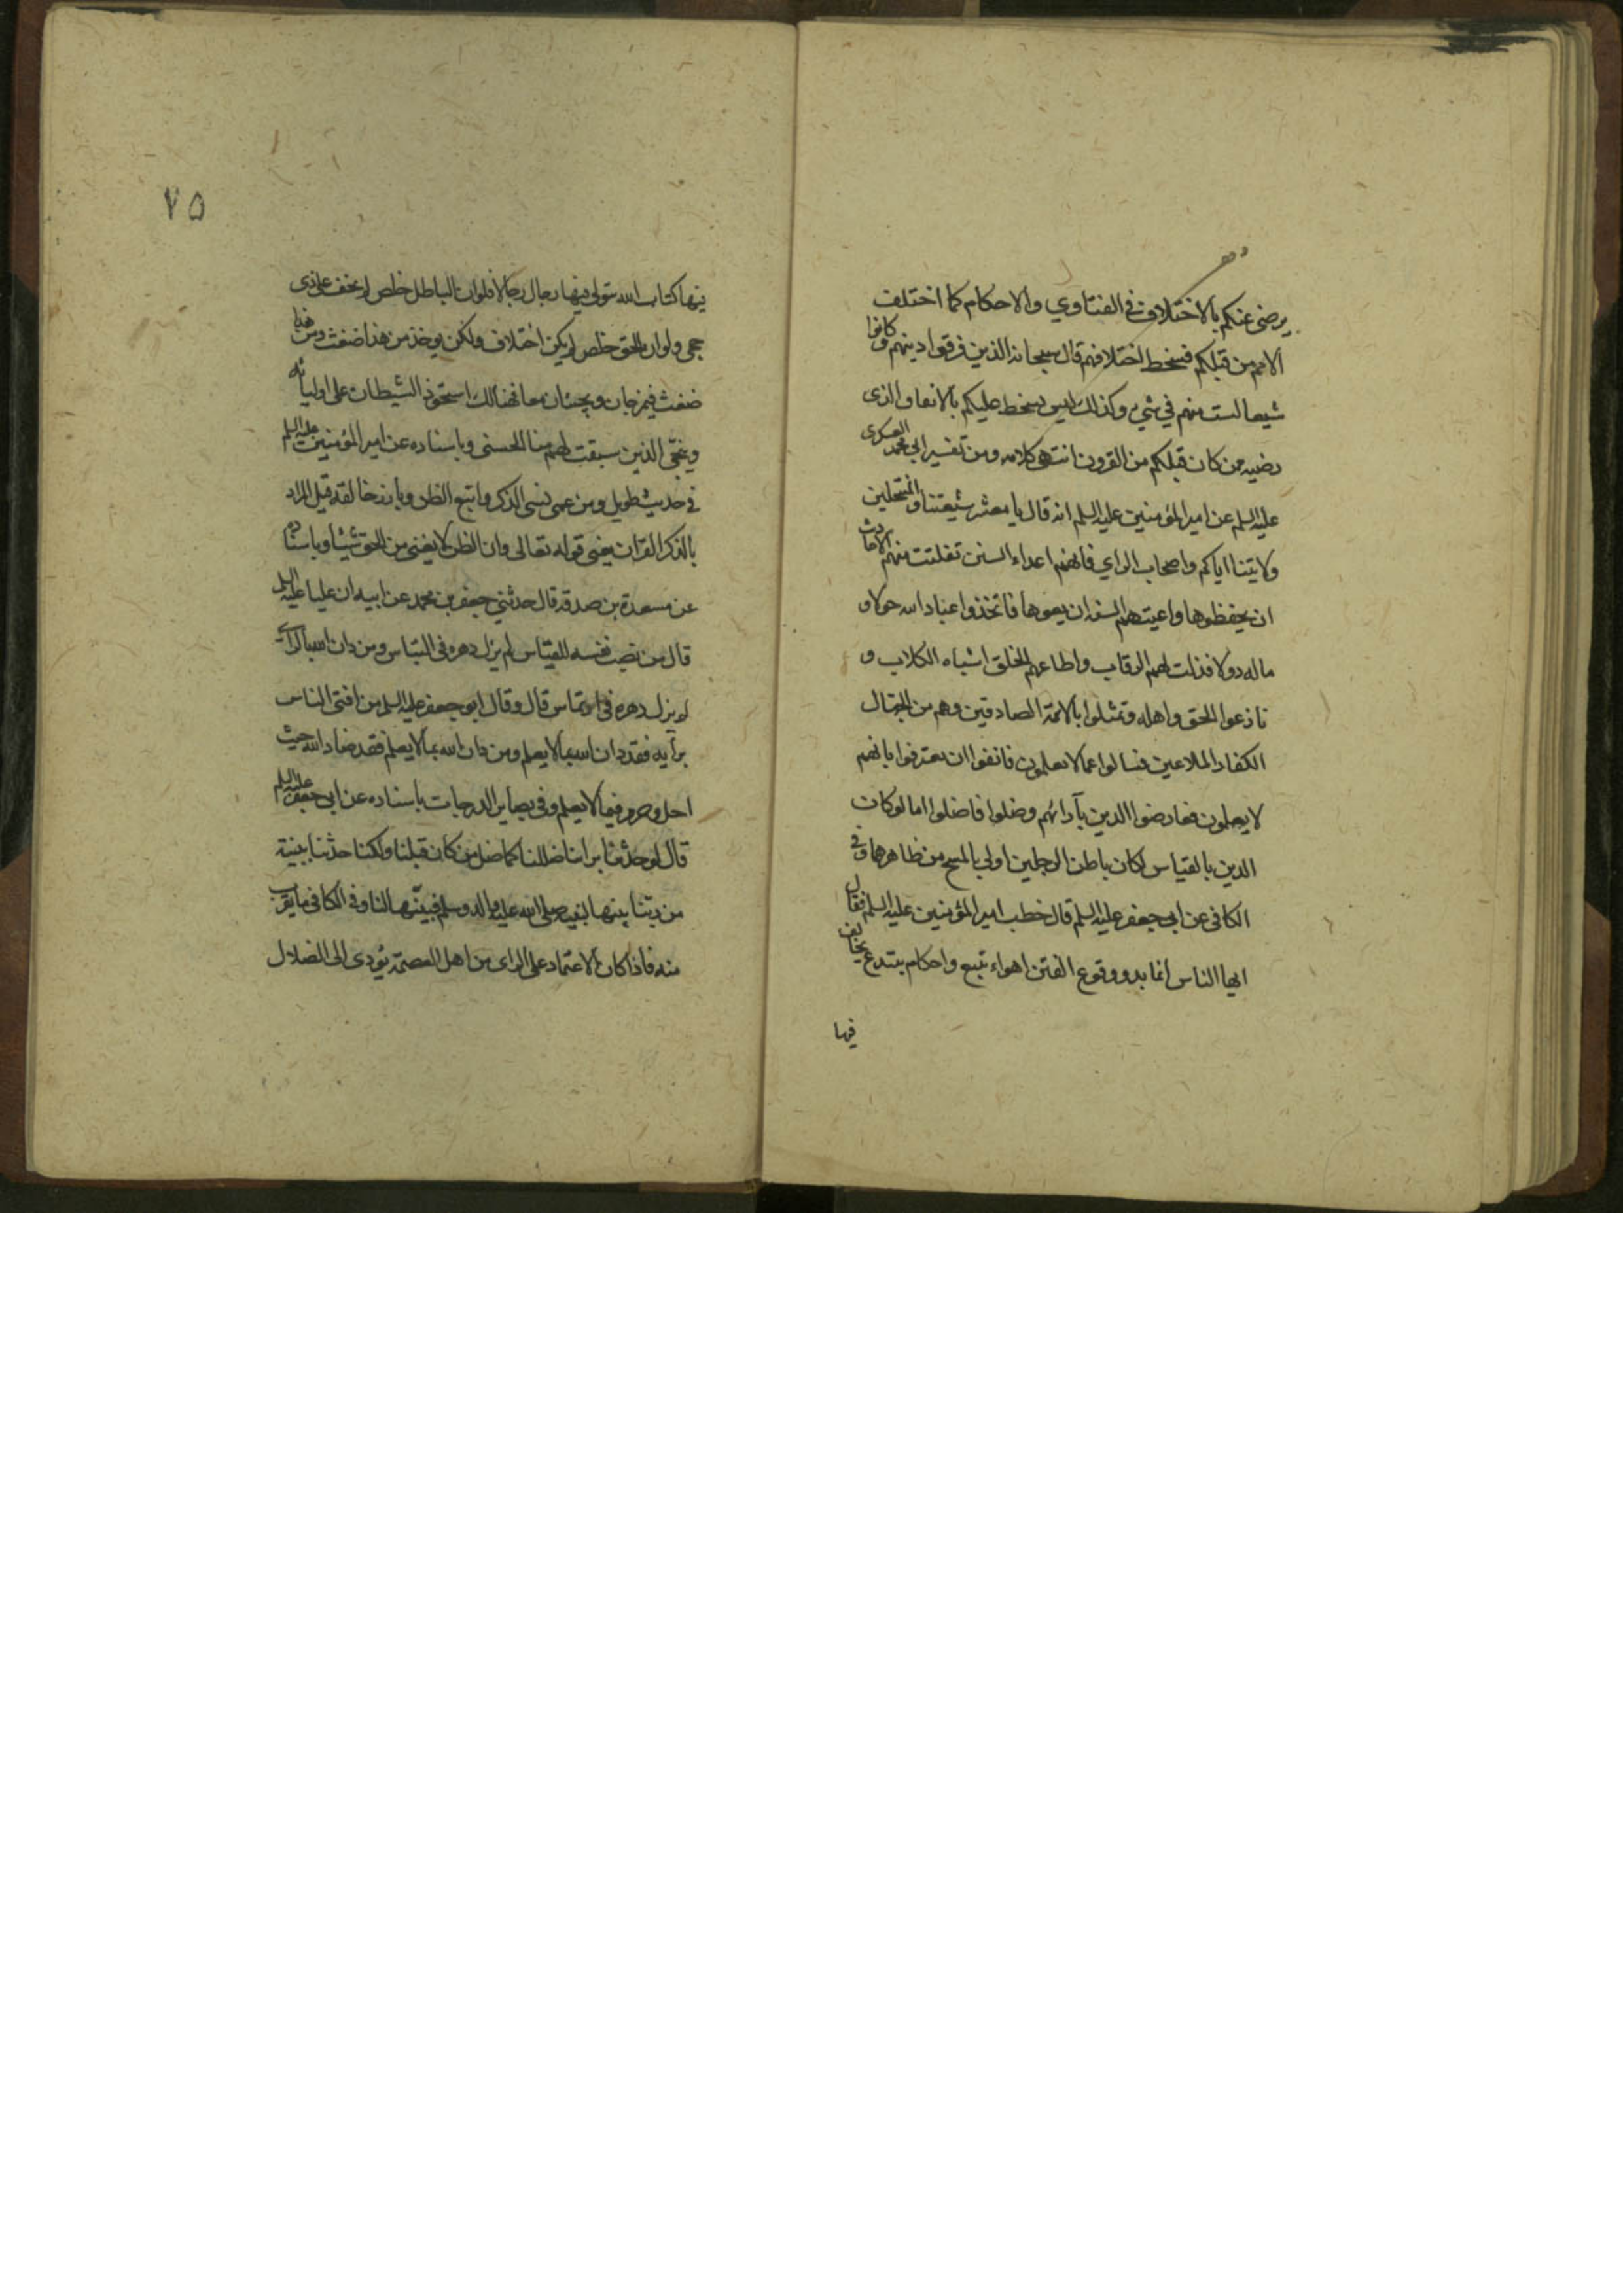 يرضى عنكم بالاختلاف في الفتاوي والاحكام كما اختلف
الامم من قبلكم فسخط اختلافهم قال سبحانه الذين فرقوا دينهم وكانوا
شيعا لست منهم في شيء وكذلك ليس يسخط عليكم بالاتفاق الذى
رضيه ممن كان قبلكم من القرون انتهى كلامه ومن تفسير ابي محمد العسكرى
عليه السلم عن امير المؤمنين عليه السلم انه قال يا معشر شيعتنا والمنتحلين
ولايتنا اياكم واصحاب الراي فانهم اعداء السنن تفلتت منهم الاحاديث
ان يحفظوها واعيتهم السنة ان يعوها فاتخذوا عباد الله خولا و
ماله دولا فذلت لهم الرقاب واطاعهم الخلق اشباه الكلاب و
نازعوا الحق واهله وتمثلوا بالائمة الصادقين وهم من الجهال
الكفار الملاعين فسالوا عما لا يعلمون فانفوا ان يعترفوا بانهم
لا يعلمون فعارضوا الدين بآرائهم وضلوا فاضلوا اما لو كان
الدين بالقياس لكان باطن الرجلين اولى بالمسح من ظاهرهما وفي
الكافى عن ابى جعفر عليه السلم قال خطب امير المؤمنين عليه السلم فقال
ايها الناس انما بدو وقوع الفتن اهواء تتبع واحكام تبتدع يخالف
فيها
٧٥
فيها كتاب الله يتولى فيها رجال رجالا فلو ان الباطل خلص لم يخف على ذى
حجى ولو ان الحق خلص لم يكن اختلاف ولكن يوخذ من هذا ضغث ومن هذا
ضغث فيمزجان ويجيئان معا فهنالك استحوذ الشيطان على اوليائه
ونجّى الذين سبقت لهم منا الحسنى وباسناده عن امير المؤمنين عليه السلم
في حديث طويل ومن عمى نسى الذكر واتبع الظن وبارز خالقه قيل المراد
بالذكر القران يعنى قوله تعالى وان الظن لا يغنى من الحق شيئا وباسناده
عن مسعدة بن صدقة قال حدثني جعفر بن محمد عن ابيه ان عليا عليه السلم
قال من نصب نفسه للقياس لم يزل دهره في التباس ومن دان الله بالراى
لم يزل دهره في ارتماس قال وقال ابو جعفر عليه السلم من افتى الناس
برأيه فقد دان الله بما لا يعلم ومن دان الله بما لا يعلم فقد ضاد الله حيث
احل وحرم فيما لا يعلم وفي بصاير الدرجات باسناده عن ابى جعفر عليه السلم
قال لو حدثنا براينا ضللنا كما ضل من كان قبلنا ولكنا حدثنا ببينة
من ربنا بينها لنبيه صلى الله عليه واله وسلم فبيّنها لنا وفي الكافى ما يقرب
منه فاذا كان الاعتماد على الراى من اهل العصمة يؤدى الى الضلال